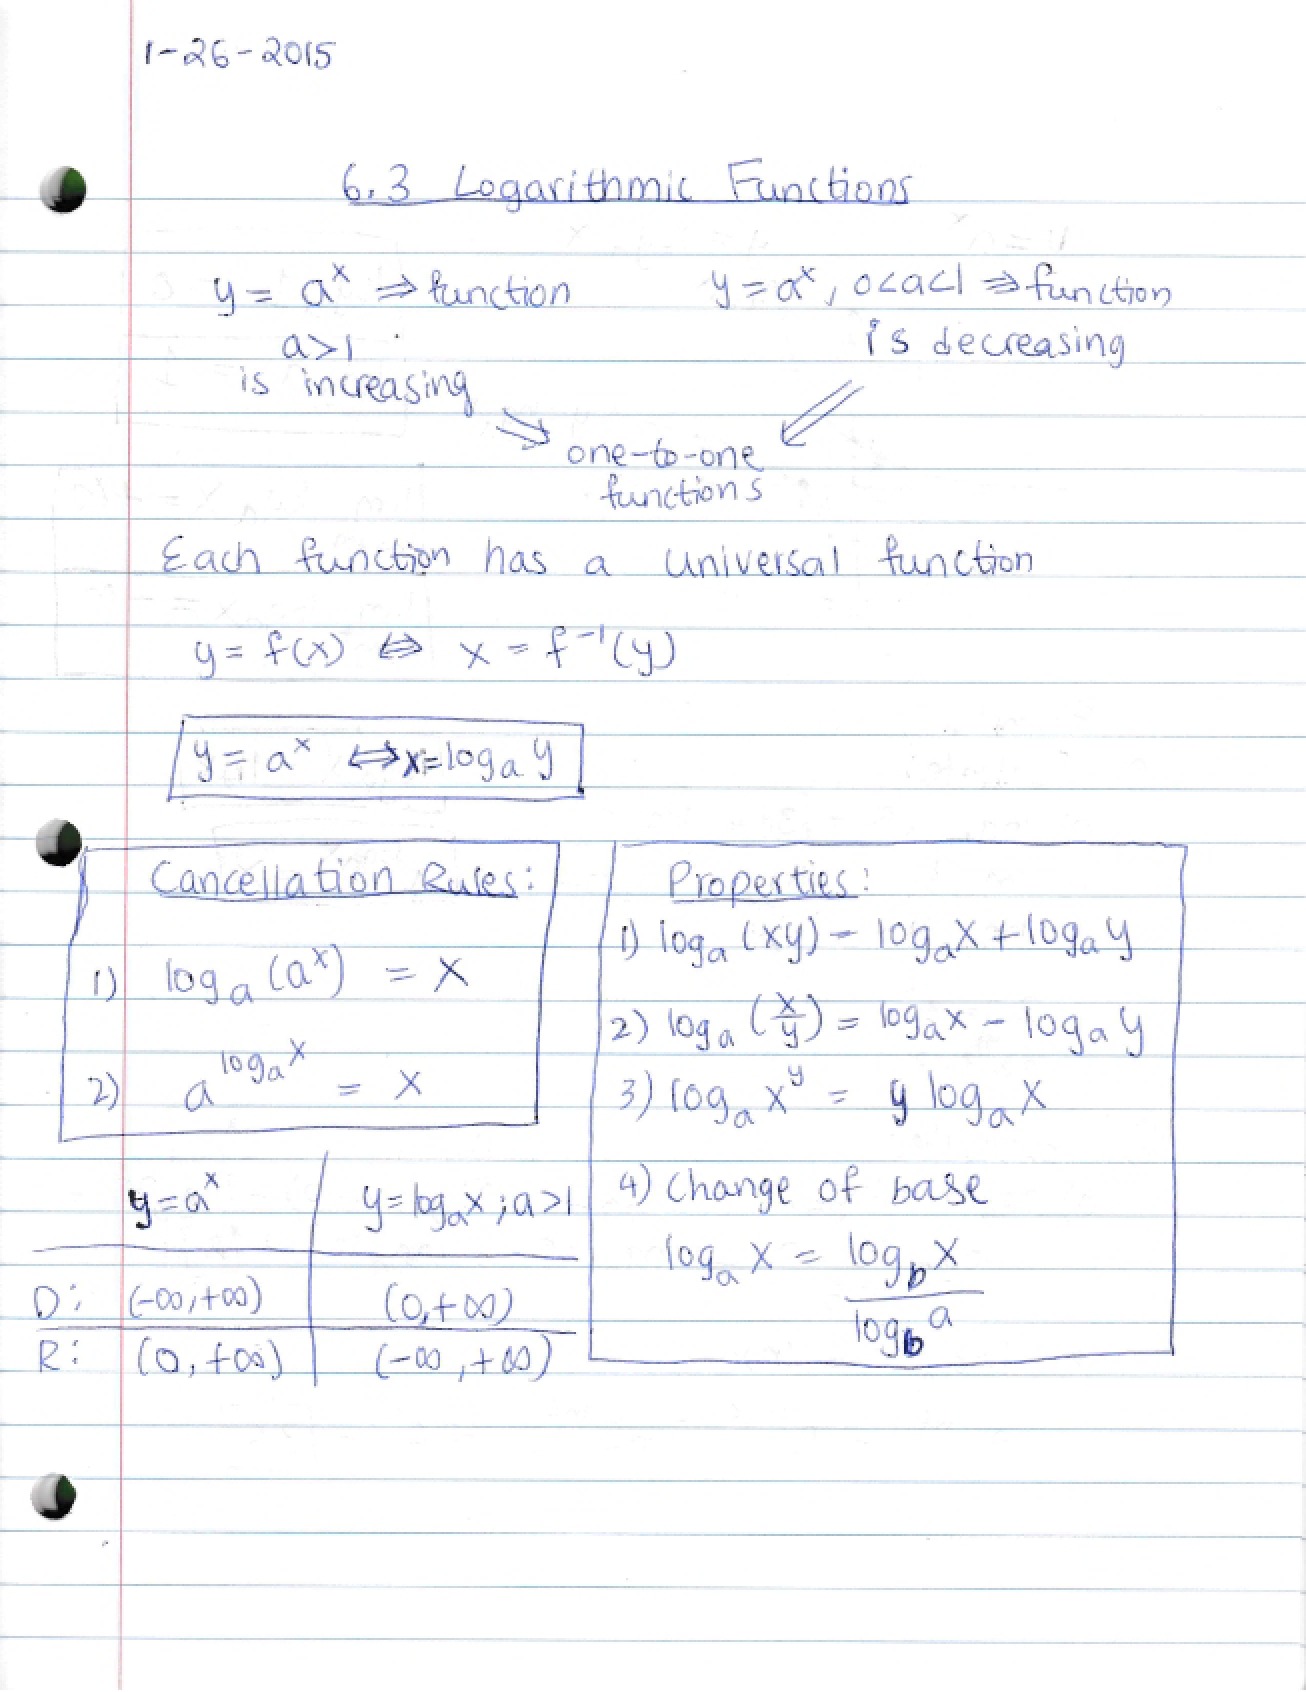 1-26-2015
6.3 Logarithmic Functions
y = aˣ ⇒ function
a>1
is increasing
y = aˣ, 0<a<1 ⇒ function
is decreasing
one-to-one
functions
Each function has a universal function
y = f(x) ⇔ x = f⁻¹(y)
y = aˣ ⇔ x = logₐ y
Cancellation Rules:
1) logₐ (aˣ) = x
2) a^(logₐ x) = x
Properties:
1) logₐ (xy) = logₐ x + logₐ y
2) logₐ (x/y) = logₐ x - logₐ y
3) logₐ xʸ = y logₐ x
4) Change of base
logₐ x = log_b x
log_b a
y = aˣ y = logₐ x ; a>1
D: (-∞, +∞) (0, +∞)
R: (0, +∞) (-∞, +∞)